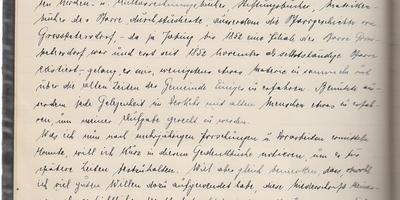 ten Kirchen- u. Stiftungsbücher, Matriken-
bücher der Pfarre durchstöberte, ausserdem die Pfarrgeschichte von
Grosspetersdorf, - da ja Jabing bis 1852 eine Filiale der Pfarre Gross-
petersdorf war und erst seit 1852 November als selbstständige Pfarre
existiert - gelang es mir, wenigstens etwas Material zu sammeln und
über die alten Zeiten der Gemeinde einiges zu erfahren. Benützte aus-
serdem jede Gelegenheit im Verkehr mit alten Menschen etwas zu erfah-
ren, um meiner Aufgabe gerecht zu werden.
Was ich nun nach mehrjährigen Forschungen u. Vorarbeiten ermitteln
konnte, will ich kurz in diesem Gedenkbuche notieren, um es für
spätere Zeiten festzuhalten. Will aber gleich bemerken, dass obwohl
ich viel guten Willen dazu aufgewendet habe, diese